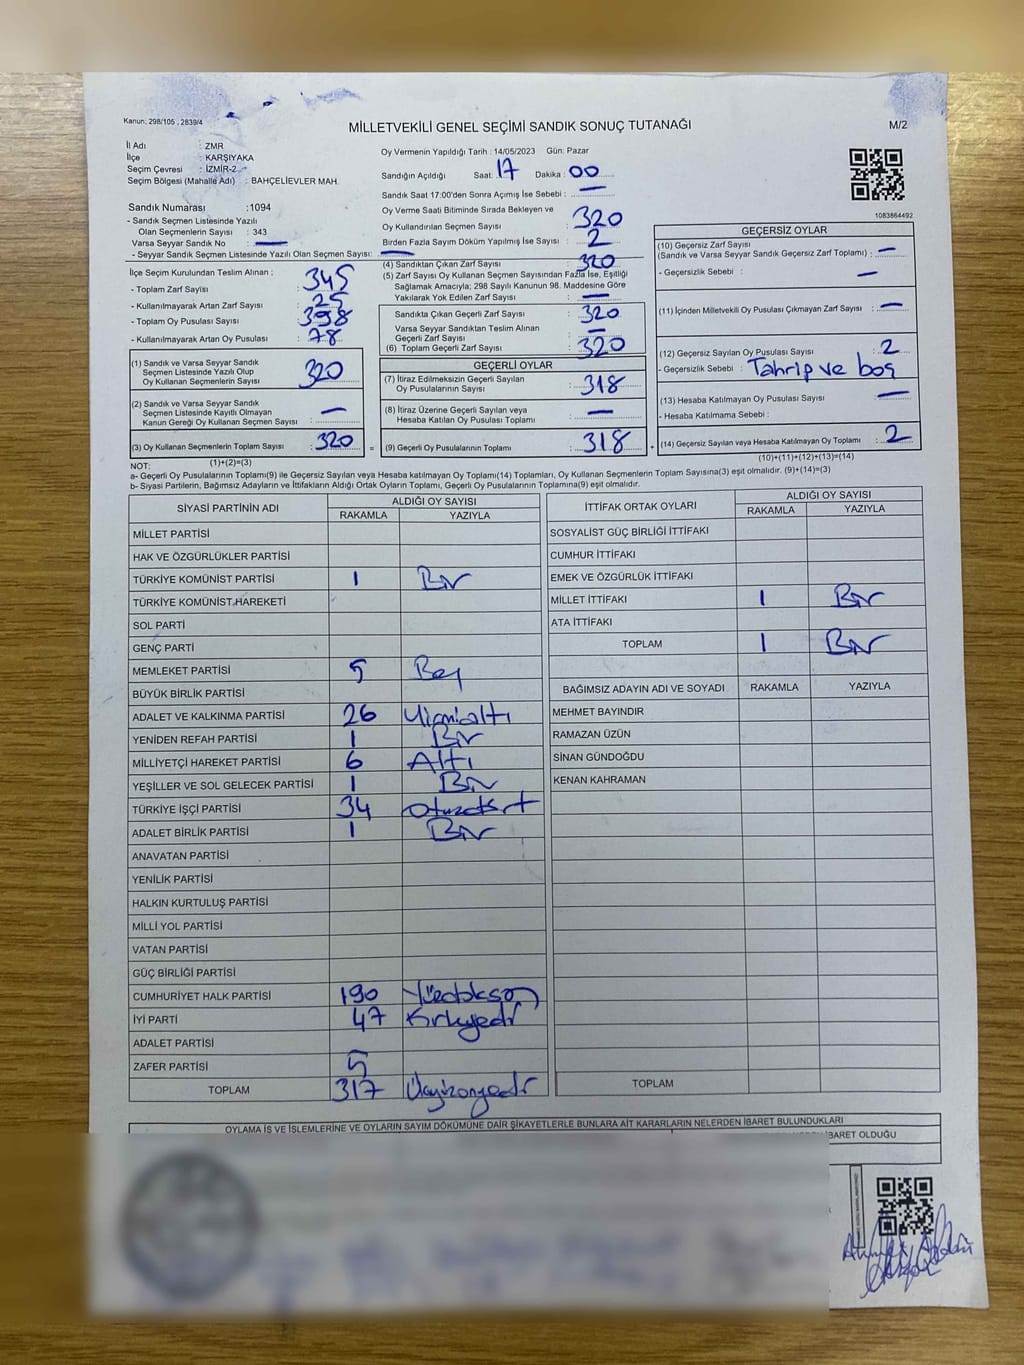 Kanun: 298/105 , 2839/4
MİLLETVEKİLİ GENEL SEÇİMİ SANDIK SONUÇ TUTANAĞI
M/2
İl Adı : ZMR
İlçe : KARŞIYAKA
Seçim Çevresi : İZMİR-2
Seçim Bölgesi (Mahalle Adı) : BAHÇELİEVLER MAH.
Sandık Numarası :1094
- Sandık Seçmen Listesinde Yazılı
Olan Seçmenlerin Sayısı : 343
Varsa Seyyar Sandık No : —
- Seyyar Sandık Seçmen Listesinde Yazılı Olan Seçmen Sayısı: —
Oy Vermenin Yapıldığı Tarih : 14/05/2023 Gün: Pazar
Sandığın Açıldığı Saat: 17 Dakika : 00
Sandık Saat 17:00'den Sonra Açımış İse Sebebi : —
Oy Verme Saati Bitiminde Sırada Bekleyen ve
Oy Kullandırılan Seçmen Sayısı : 320
Birden Fazla Sayım Döküm Yapılmış İse Sayısı : 2
1083864492
İlçe Seçim Kurulundan Teslim Alınan :
- Toplam Zarf Sayısı : 345
- Kullanılmayarak Artan Zarf Sayısı : 25
- Toplam Oy Pusulası Sayısı : 398
- Kullanılmayarak Artan Oy Pusulası : 78
(4) Sandıktan Çıkan Zarf Sayısı : 320
(5) Zarf Sayısı Oy Kullanan Seçmen Sayısından Fazla İse, Eşitliği
Sağlamak Amacıyla; 298 Sayılı Kanunun 98. Maddesine Göre
Yakılarak Yok Edilen Zarf Sayısı : —
Sandıkta Çıkan Geçerli Zarf Sayısı : 320
Varsa Seyyar Sandıktan Teslim Alınan
Geçerli Zarf Sayısı : —
(6) Toplam Geçerli Zarf Sayısı : 320
(1) Sandık ve Varsa Seyyar Sandık
Seçmen Listesinde Yazılı Olup
Oy Kullanan Seçmenlerin Sayısı : 320
(2) Sandık ve Varsa Seyyar Sandık
Seçmen Listesinde Kayıtlı Olmayan
Kanun Gereği Oy Kullanan Seçmen Sayısı : —
(3) Oy Kullanan Seçmenlerin Toplam Sayısı : 320
(1)+(2)=(3)
=
GEÇERLİ OYLAR
(7) İtiraz Edilmeksizin Geçerli Sayılan
Oy Pusulalarının Sayısı : 318
(8) İtiraz Üzerine Geçerli Sayılan veya
Hesaba Katılan Oy Pusulası Toplamı : —
(9) Geçerli Oy Pusulalarının Toplamı : 318
+
GEÇERSİZ OYLAR
(10) Geçersiz Zarf Sayısı
(Sandık ve Varsa Seyyar Sandık Geçersiz Zarf Toplamı) : —
- Geçersizlik Sebebi : —
(11) İçinden Milletvekili Oy Pusulası Çıkmayan Zarf Sayısı : —
(12) Geçersiz Sayılan Oy Pusulası Sayısı : 2
- Geçersizlik Sebebi : Tahrip ve boş
(13) Hesaba Katılmayan Oy Pusulası Sayısı : —
- Hesaba Katılmama Sebebi :
(14) Geçersiz Sayılan veya Hesaba Katılmayan Oy Toplamı : 2
(10)+(11)+(12)+(13)=(14)
NOT:
a- Geçerli Oy Pusulalarının Toplamı(9) ile Geçersiz Sayılan veya Hesaba katılmayan Oy Toplamı(14) Toplamları, Oy Kullanan Seçmenlerin Toplam Sayısına(3) eşit olmalıdır. (9)+(14)=(3)
b- Siyasi Partilerin, Bağımsız Adayların ve İttifakların Aldığı Ortak Oyların Toplamı, Geçerli Oy Pusulalarının Toplamına(9) eşit olmalıdır.
SİYASİ PARTİNİN ADI ALDIĞI OY SAYISI
RAKAMLA YAZIYLA
MİLLET PARTİSİ
HAK VE ÖZGÜRLÜKLER PARTİSİ
TÜRKİYE KOMÜNİST PARTİSİ 1 Bir
TÜRKİYE KOMÜNİST HAREKETİ
SOL PARTİ
GENÇ PARTİ
MEMLEKET PARTİSİ 5 Beş
BÜYÜK BİRLİK PARTİSİ
ADALET VE KALKINMA PARTİSİ 26 Yirmialtı
YENİDEN REFAH PARTİSİ 1 Bir
MİLLİYETÇİ HAREKET PARTİSİ 6 Altı
YEŞİLLER VE SOL GELECEK PARTİSİ 1 Bir
TÜRKİYE İŞÇİ PARTİSİ 34 Otuzdört
ADALET BİRLİK PARTİSİ 1 Bir
ANAVATAN PARTİSİ
YENİLİK PARTİSİ
HALKIN KURTULUŞ PARTİSİ
MİLLİ YOL PARTİSİ
VATAN PARTİSİ
GÜÇ BİRLİĞİ PARTİSİ
CUMHURİYET HALK PARTİSİ 190 Yüzdoksan
İYİ PARTİ 47 Kırkyedi
ADALET PARTİSİ
ZAFER PARTİSİ 5
TOPLAM 317 Üçyüzonyedi
İTTİFAK ORTAK OYLARI ALDIĞI OY SAYISI
RAKAMLA YAZIYLA
SOSYALİST GÜÇ BİRLİĞİ İTTİFAKI
CUMHUR İTTİFAKI
EMEK VE ÖZGÜRLÜK İTTİFAKI
MİLLET İTTİFAKI 1 Bir
ATA İTTİFAKI
TOPLAM 1 Bir
BAĞIMSIZ ADAYIN ADI VE SOYADI RAKAMLA YAZIYLA
MEHMET BAYINDIR
RAMAZAN ÜZÜN
SİNAN GÜNDOĞDU
KENAN KAHRAMAN
TOPLAM
OYLAMA İŞ VE İŞLEMLERİNE VE OYLARIN SAYIM DÖKÜMÜNE DAİR ŞİKAYETLERLE BUNLARA AİT KARARLARIN NELERDEN İBARET BULUNDUKLARI
BARET OLDUĞU